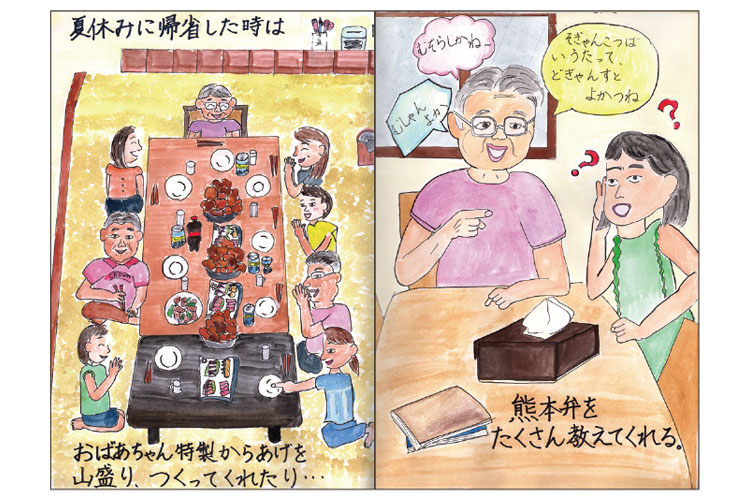 夏休みに帰省した時は
おばあちゃん特製からあげを
山盛り、つくってくれたり…
むぞらしかね~
むしゃん
よか
そぎゃんこつは
いうたって、
どぎゃんすっと
よかつね
熊本弁を
たくさん教えてくれる。